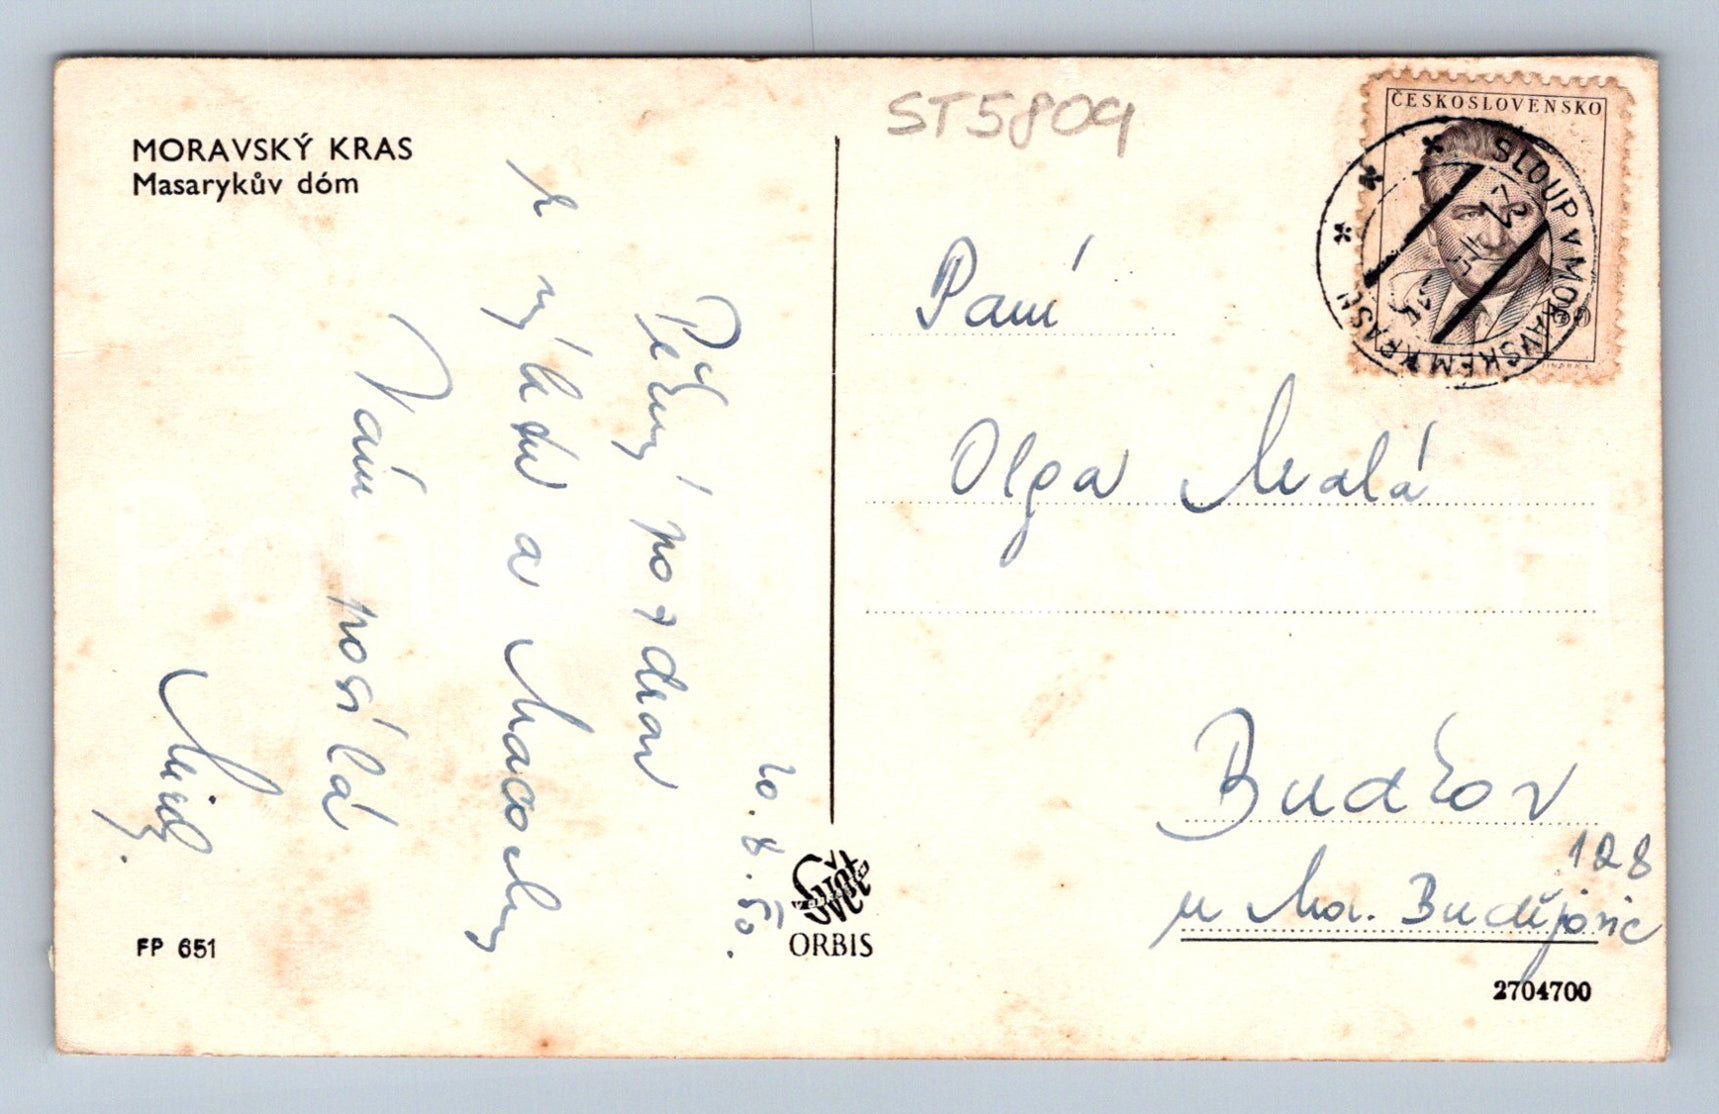 MORAVSKÝ KRAS
Masarykův dóm
20. 8. 50.
Pěkný pozdrav
z výletu a Macochy
Vám posílá
FP 651
ORBIS
ST5809
ČESKOSLOVENSKO
SLOUP V MORAVSKÉM KRASU
Paní
Olga Malá
Budkov
128
u Mor. Budějovic
2704700